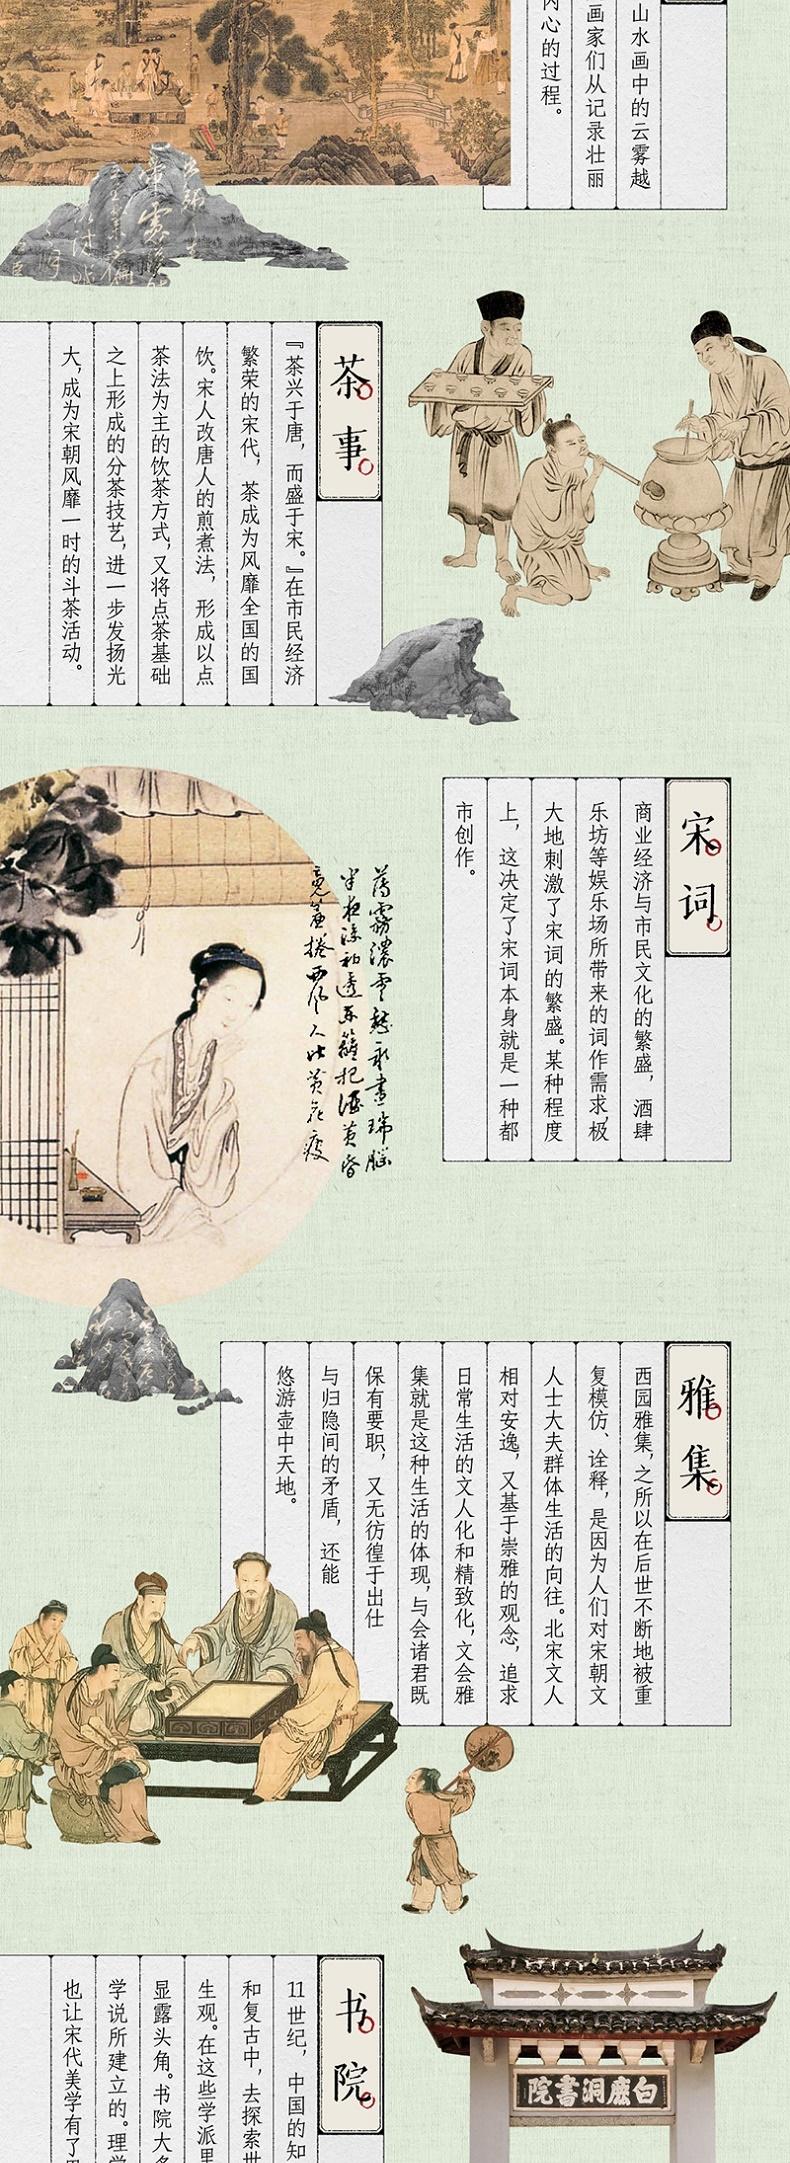 山水画中的云雾越
画家们从记录壮丽
内心的过程。
茶事
『茶兴于唐，而盛于宋。』在市民经济
繁荣的宋代，茶成为风靡全国的国
饮。宋人改唐人的煎煮法，形成以点
茶法为主的饮茶方式，又将点茶基础
之上形成的分茶技艺，进一步发扬光
大，成为宋朝风靡一时的斗茶活动。
宋词
商业经济与市民文化的繁盛，酒肆
乐坊等娱乐场所带来的词作需求，极
大地刺激了宋词的繁盛。某种程度
上，这决定了宋词本身就是一种都
市创作。
薄霧濃雲愁永晝瑞腦
半夜涼初透東籬把酒黃昏
捲西風人比黃花瘦
雅集
西园雅集，之所以在后世不断地被重
复模仿、诠释，是因为人们对宋朝文
人士大夫群体生活的向往。北宋文人
相对安逸，又基于崇雅的观念，追求
日常生活的文人化和精致化，文会雅
集就是这种生活的体现，与会诸君既
保有要职，又无彷徨于出仕
与归隐间的矛盾，还能
悠游壶中天地。
书院
11世纪，中国的知
和复古中，去探索世
生观。在这些学派里
显露头角。书院大多
学说所建立的。理学
也让宋代美学有了
白鹿洞書院